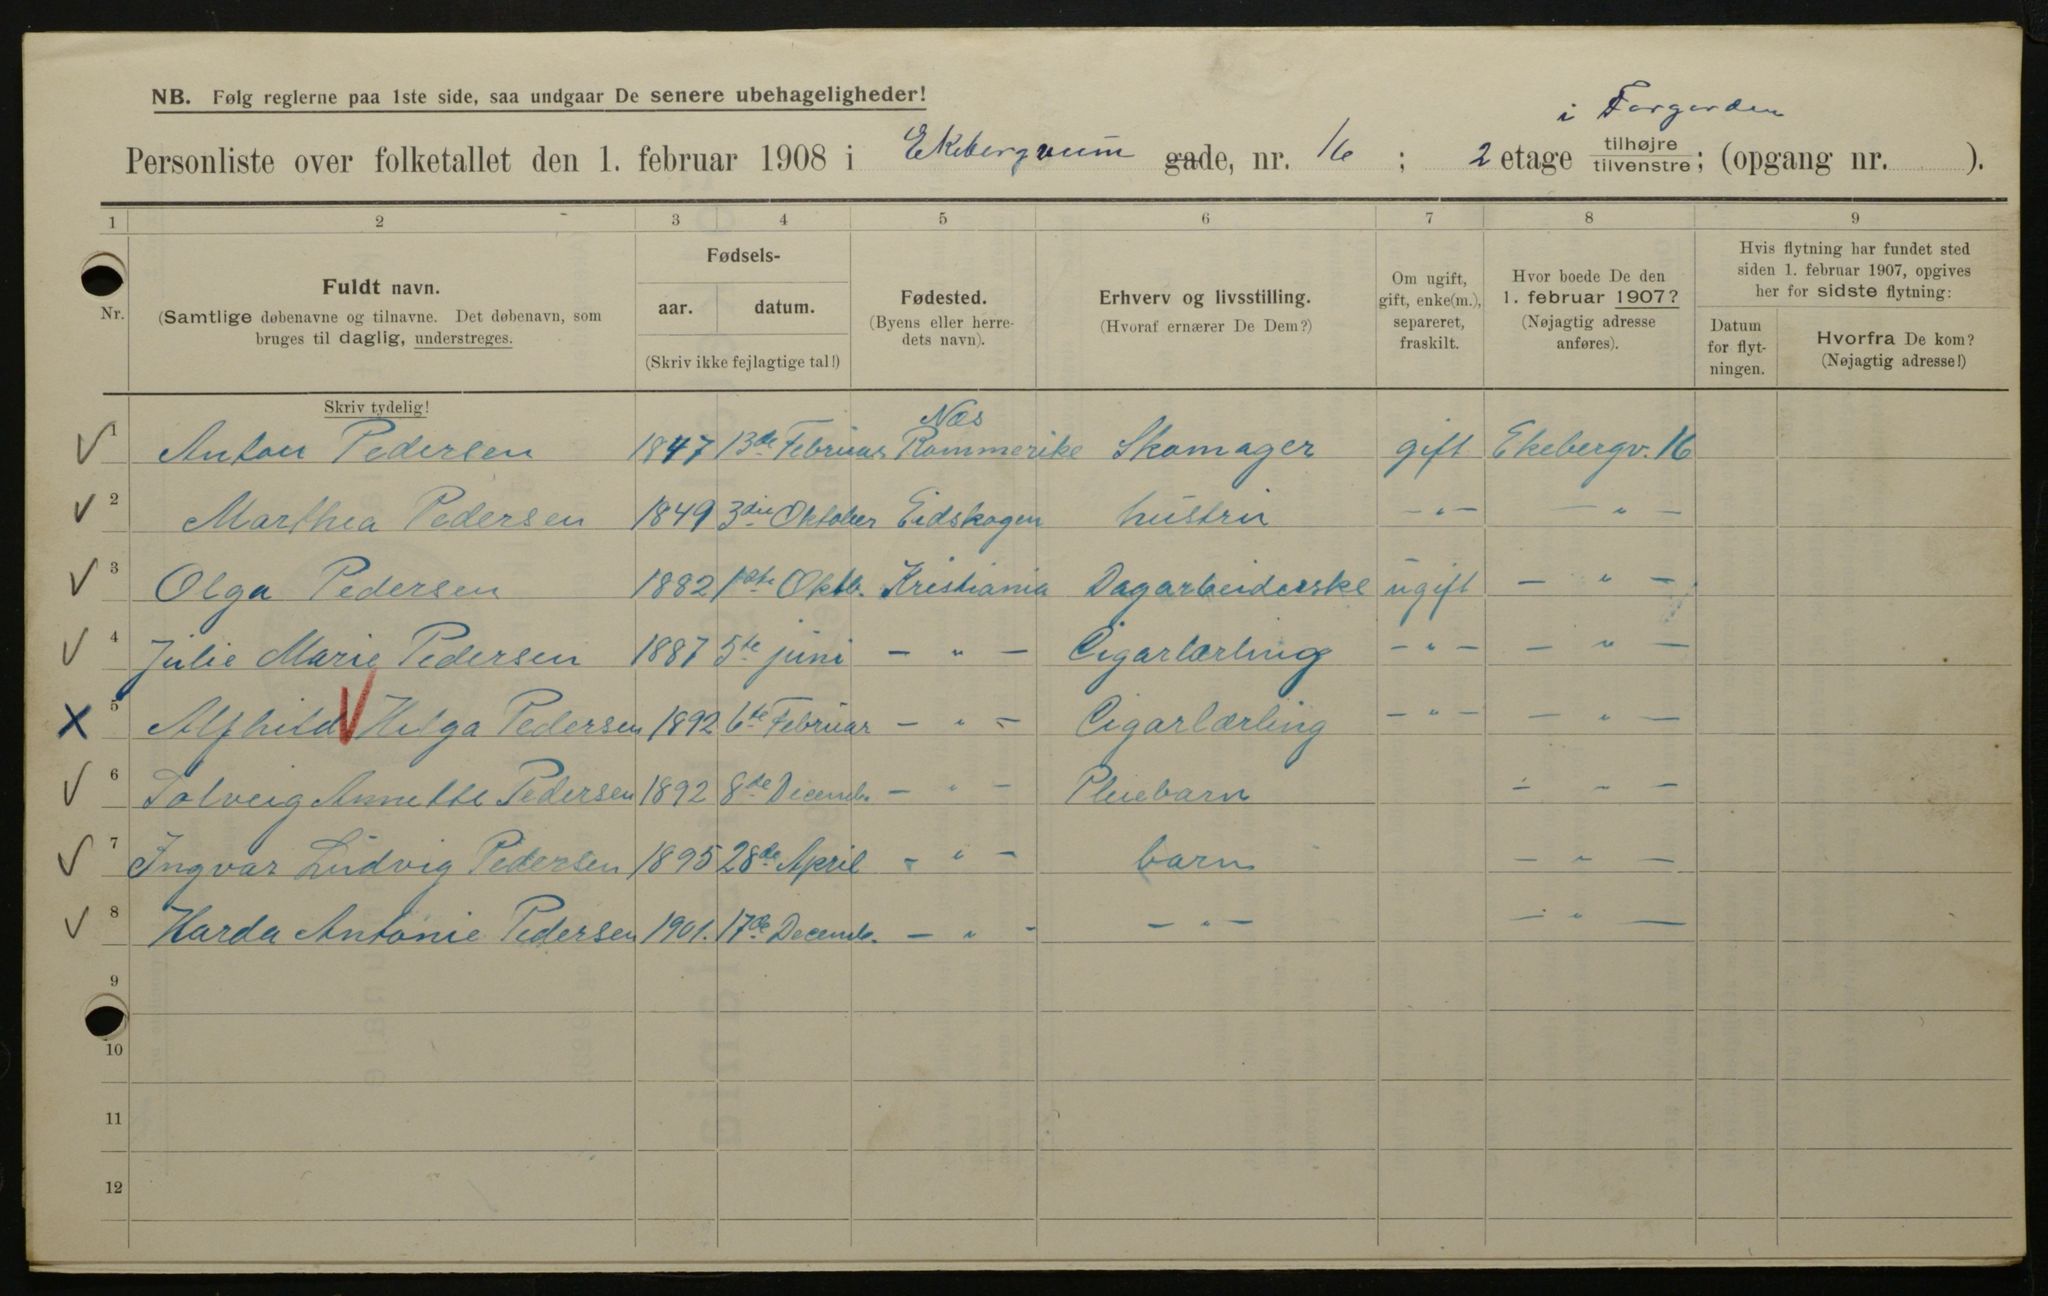 NB. Følg reglerne paa 1ste side, saa undgaar De senere ubehageligheder!
i Forgarden
Personliste over folketallet den 1. februar 1908 i Ekebergveien gade, nr. 16 ; 2 etage tilhøjre tilvenstre; (opgang nr. ).
1 2 3 4 5 6 7 8 9
Nr.
Fuldt navn.
(Samtlige døbenavne og tilnavne. Det døbenavn, som
bruges til daglig, understreges.
Skriv tydelig!
Fødsels-
aar. datum.
(Skriv ikke fejlagtige tal!)
Fødested.
(Byens eller herre-
dets navn).
Erhverv og livsstilling.
(Hvoraf ernærer De Dem?)
Om ugift,
gift, enke(m.),
separeret,
fraskilt.
Hvor boede De den
1. februar 1907?
(Nøjagtig adresse
anføres).
Hvis flytning har fundet sted
siden 1. februar 1907, opgives
her for sidste flytning:
Datum
for flyt-
ningen.
Hvorfra De kom?
(Nøjagtig adresse!)
Næs
1 Anton Pedersen 1847 13de Februar Rommerike Skomager gift Ekebergv. 16
2 Marthea Pedersen 1849 3die Oktober Eidskogen hustru — " — — " —
3 Olga Pedersen 1882 1ste Oktb. Kristiania Dagarbeiderske ugift — " —
4 Julie Marie Pedersen 1887 5te juni — " — Cigarlærling — " — — " —
5 Alfhild Helga Pedersen 1892 6te Februar — " — Cigarlærling — " — — " —
6 Solveig Annette Pedersen 1892 8de Decemb. — " — Pleiebarn — " —
7 Ingvar Ludvig Pedersen 1895 28de April — " — barn — " —
8 Harda Antonie Pedersen 1901. 17de Decemb. — " — — " — — " —
9
10
11
12